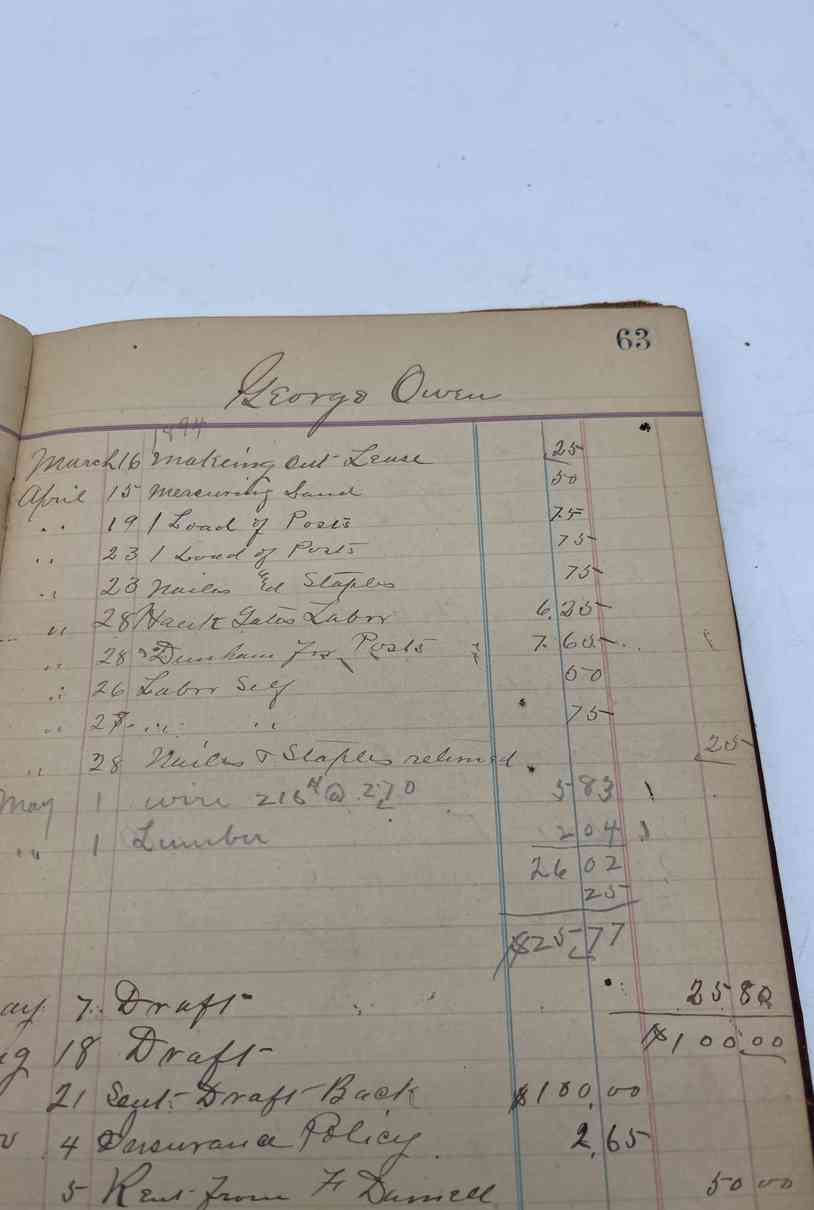 63
George Owen
1894
March 16 makeing out Lease 25
April 15 mercuring Land 50
" 19 1 Load of Posts 75
" 23 1 Load of Posts 75
" 23 Nailes & Staples 75
" 28 Gates Labor 6.25
" 28 Dunham For Posts 7.65
" 26 Labor Self 50
" 27 " " 75
" 28 Nailes & Staples returned 25
May 1 wire 216 # @ 2.70 5 83
" 1 Lumber 2 04
26 02
25
$25 77
ay 7 Draft 25 80
g 18 Draft $100.00
21 Sent Draft Back $100.00
v 4 Insurance Policy 2.65
5 Rent from F Darnell 50 00